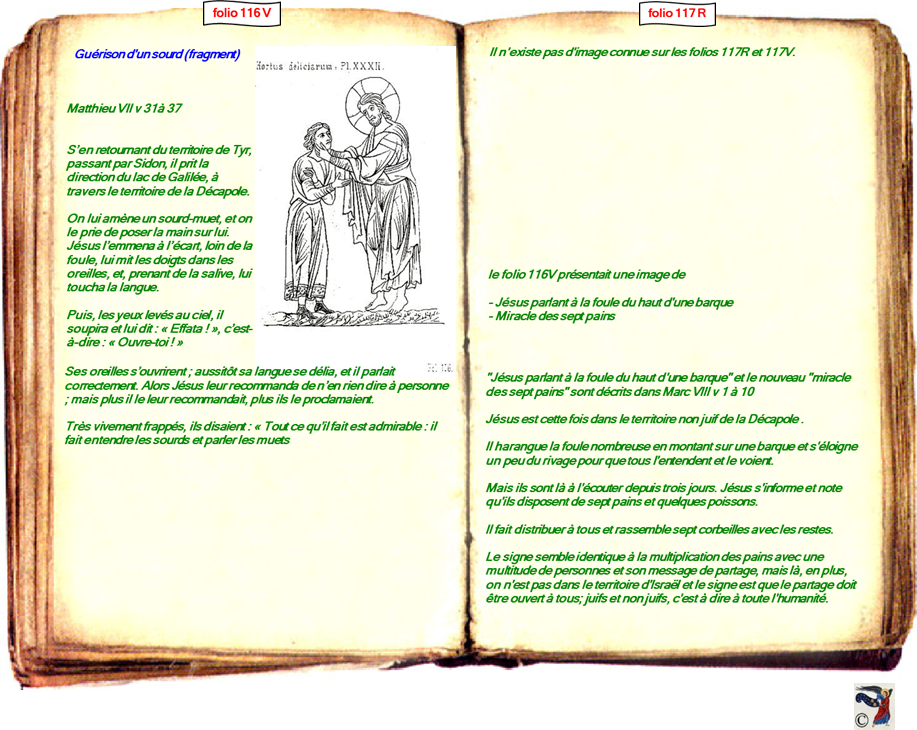 folio 116V
Guérison d'un sourd (fragment)
Hortus deliciarum. Pl.XXXII.
Matthieu VII v 31à 37
S'en retournant du territoire de Tyr,
passant par Sidon, il prit la
direction du lac de Galilée, à
travers le territoire de la Décapole.
On lui amène un sourd-muet, et on
le prie de poser la main sur lui.
Jésus l'emmena à l'écart, loin de la
foule, lui mit les doigts dans les
oreilles, et, prenant de la salive, lui
toucha la langue.
Puis, les yeux levés au ciel, il
soupira et lui dit : « Effata ! », c'est-
à-dire : « Ouvre-toi ! »
Ses oreilles s'ouvrirent ; aussitôt sa langue se délia, et il parlait
correctement. Alors Jésus leur recommanda de n'en rien dire à personne
; mais plus il le leur recommandait, plus ils le proclamaient.
Très vivement frappés, ils disaient : « Tout ce qu'il fait est admirable : il
fait entendre les sourds et parler les muets
folio 117R
Il n'existe pas d'image connue sur les folios 117R et 117V.
le folio 116V présentait une image de
- Jésus parlant à la foule du haut d'une barque
- Miracle des sept pains
"Jésus parlant à la foule du haut d'une barque" et le nouveau "miracle
des sept pains" sont décrits dans Marc VIII v 1 à 10
Jésus est cette fois dans le territoire non juif de la Décapole .
Il harangue la foule nombreuse en montant sur une barque et s'éloigne
un peu du rivage pour que tous l'entendent et le voient.
Mais ils sont là à l'écouter depuis trois jours. Jésus s'informe et note
qu'ils disposent de sept pains et quelques poissons.
Il fait distribuer à tous et rassemble sept corbeilles avec les restes.
Le signe semble identique à la multiplication des pains avec une
multitude de personnes et son message de partage, mais là, en plus,
on n'est pas dans le territoire d'Israël et le signe est que le partage doit
être ouvert à tous; juifs et non juifs, c'est à dire à toute l'humanité.
©